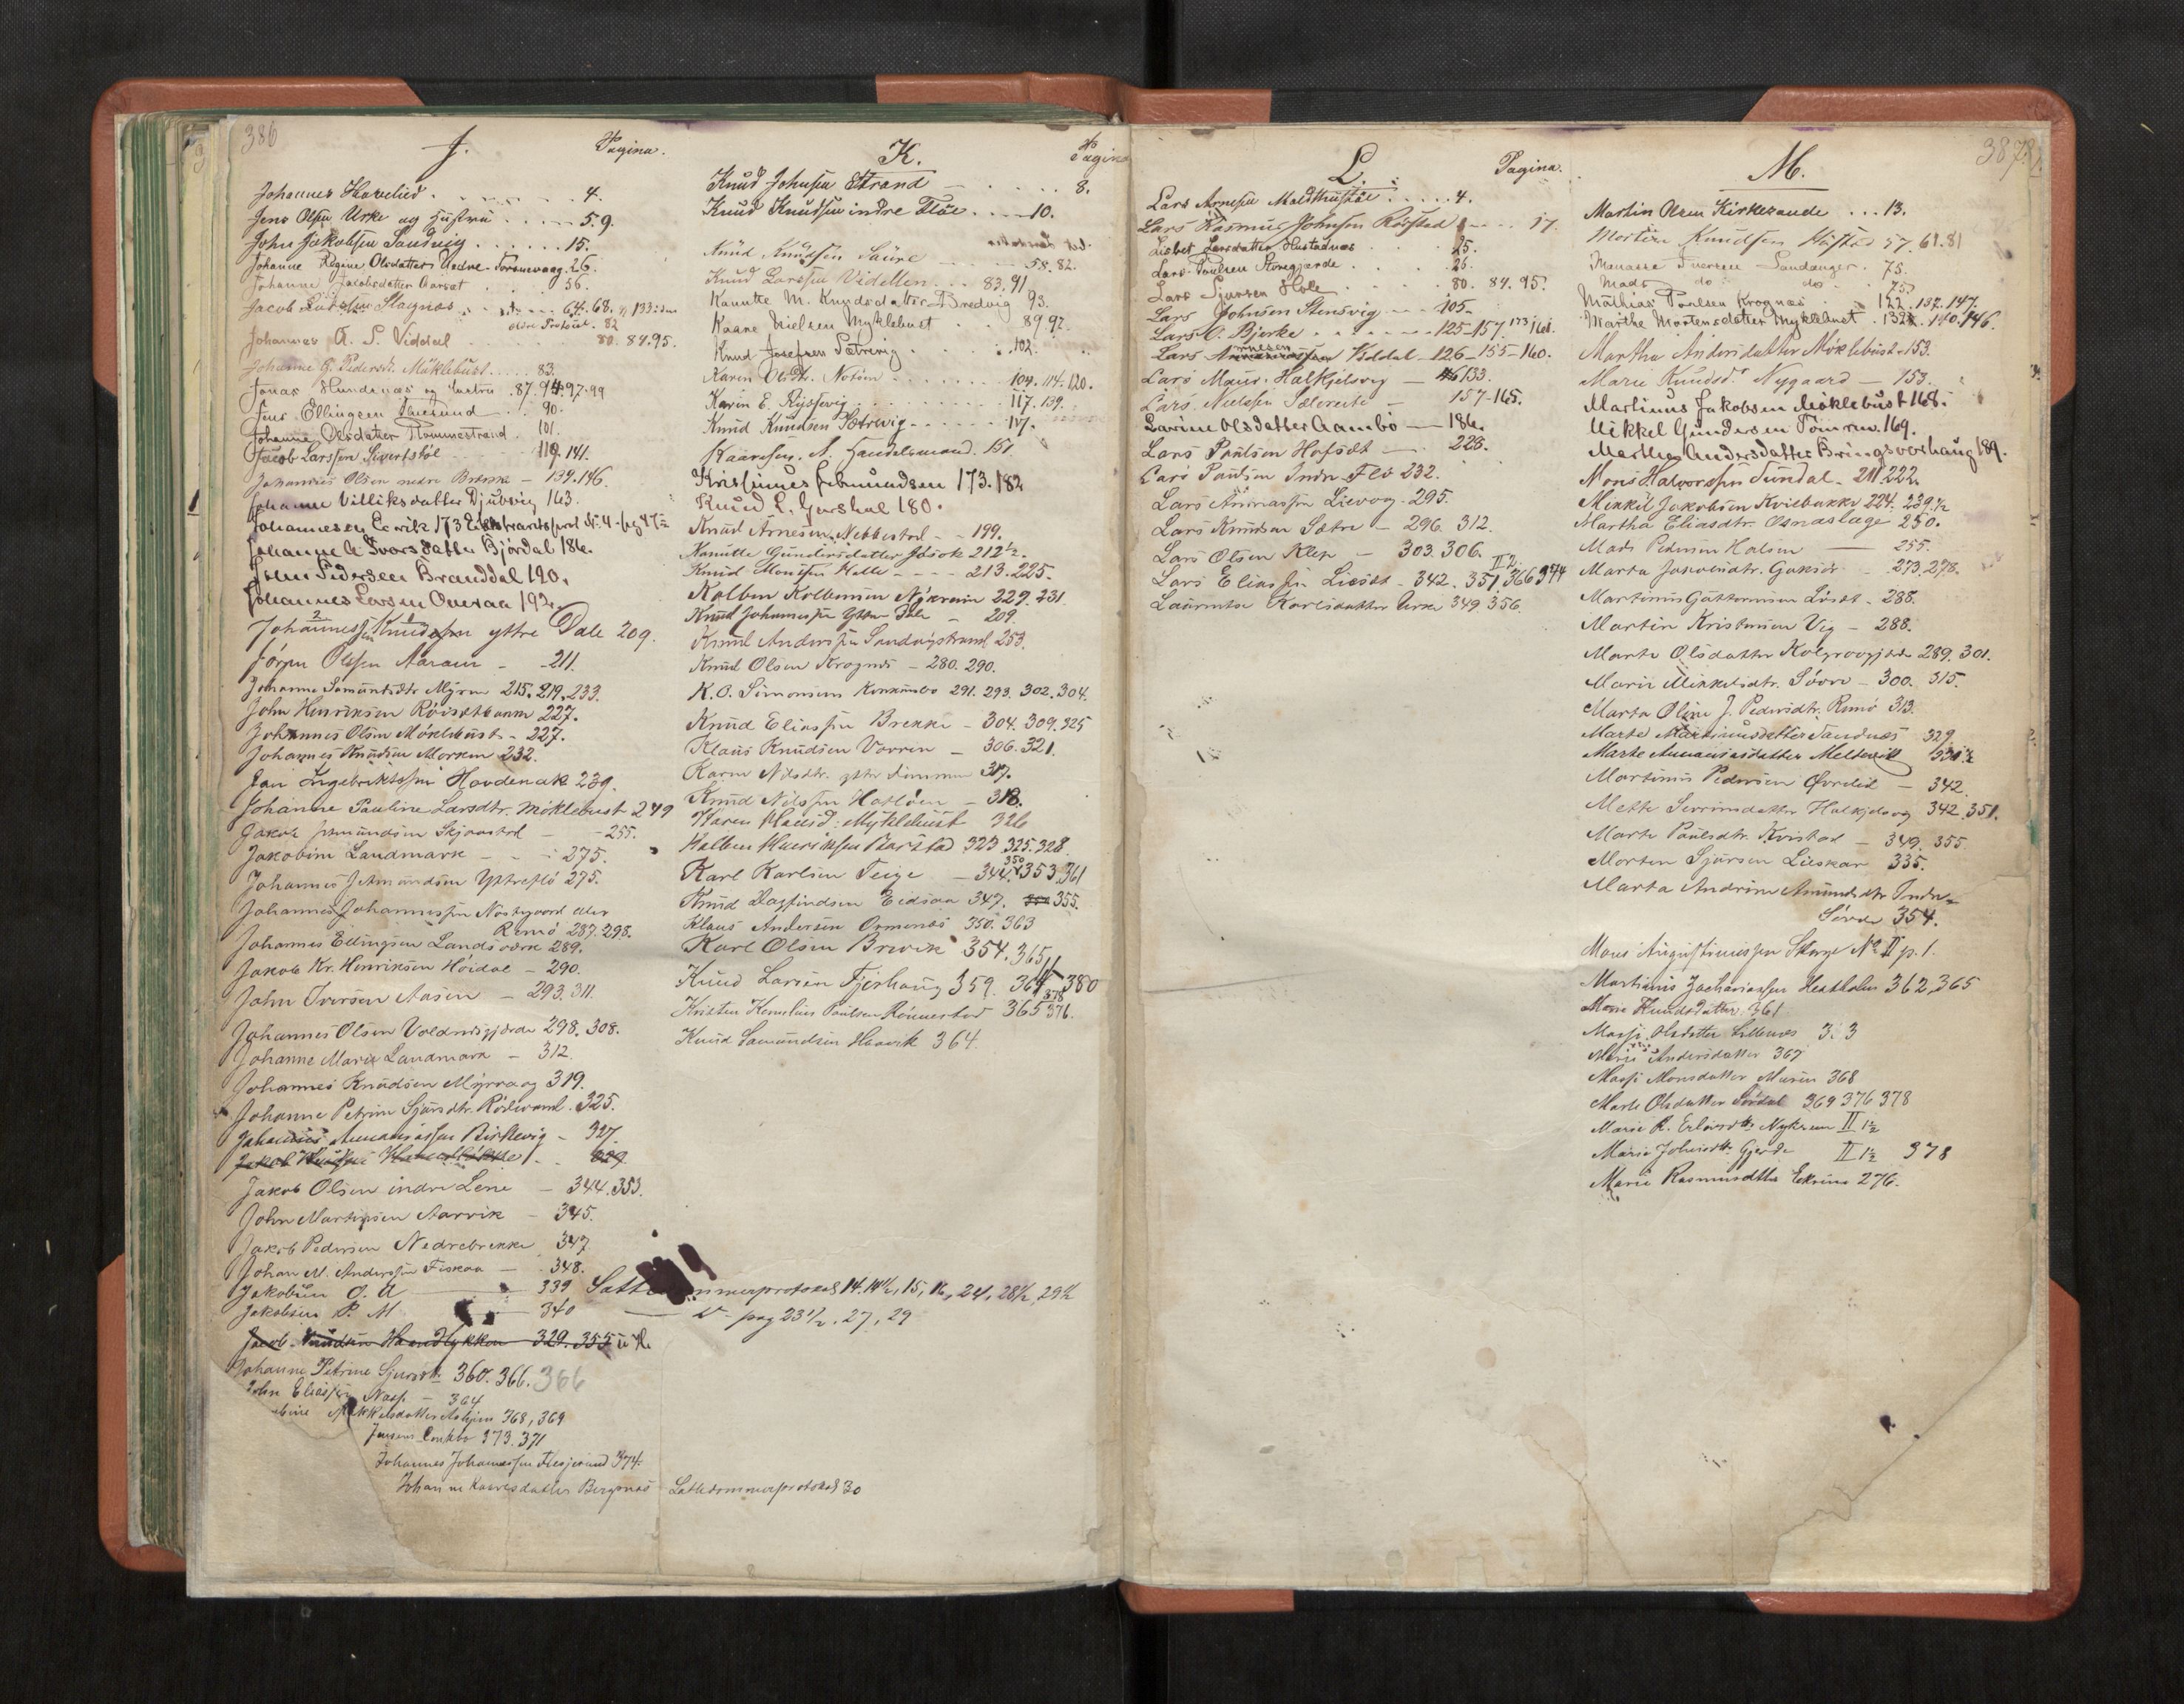 386
J.
Pagina.
Johannes Havelid 4.
Jens Olsen Urke og Hustru 5.9.
John Jakobsen Sandvig 15.
Johanne Regine Olsdatter Nedre- 26.
Johanne Jacobsdatter Aarsæt 56.
Jacob Slagnæs 64.68. 133
Protocol. 82
Johannes A. S. Viddal 80. 84.95.
Johanne G. Pedersd. Möklebust 83.
Jonas Hundsnæs og Hustru 87.94.97.99
Jens Ellingsen 90.
Johanne Olsdatter Flemmestrand 101.
Jacob Larssen Sivertstöl 119. 141.
Johannes Olsen nedre Brekke - 139.146.
Johanne Villiksdatter Djubvig 163.
Johannesen Eerik 173
Johanne A Ivarsdatter Björdal 186.
John Pedersen Branddal 190.
Johannes Larsen Overaa 192.
Johannes Knudsen yttre Dale 209.
Jörgen Olsen Aaram - 211.
Johanne Samuntsdtr Myren 215. 219. 233.
John Henriksen 227.
Johannes Olsen Möklebust - 227.
Johannes Knudsen Morken 232.
Jan Ingebriktssen Hovdenak 239.
Johanne Pauline Larsdtr. Möklebust 249
Jakob Jetmundsen Skjaastad - 255.
Jakobine Landmark - 275.
Johannes Jetmundsen Yttreflö 275.
Johannes Johannessen Nostegaard eller
Remö 287.298.
Johannes Ellingsen Landsværk 289.
Jakob Kr. Henriksen Höidal - 290.
John Iversen Aasen - 293. 311.
Johannes Olsen Voldnesgjerde 298. 308.
Johanne Marie Landmark - 312.
Johannes Knudsen Myrvaag 319.
Johanne Petrine Sjursdtr. Rödesand. 325.
Johannes Annaniassen Birkevig - 327.
Jakob 329
Jakob Olsen indre Lene - 344. 353.
John Martinsen Aarvik - 345.
Jakob Pedersen Nedrebrekke 347
Johan M. Anderssen Fiskaa - 348.
Jakobsen O. A 339 14. 14½, 15, 16, 24, 28½, 29½
Jakobsen P. M 340 - pag 23½, 27, 29
Jacob Knudsen 329. 355
Johanne Petrine Sjursdtr 360. 366. 366
John Eliassen 364
368, 369
373. 371
Johannes Johannessen Flesjesund 374.
Johanne Bergsnes Lattedommerprotokol 30
K.
Pagina
Knud Johnsen Strand 8.
Knud Knudsen indre Flöe 10.
Knud Knudsen Saure 58. 82.
Knud Larssen Videllen 83. 91
Kanutte M. Knudsdatter Bredvig 93.
Kaare Nielsen Myklebust 89 92.
Knud Josefsen Sætrevig 102.
Karen Olsdtr. Notöen 104. 114. 120.
Karen E. 117. 139.
Knud Knudsen Sætrevig 117.
Kaaresen. A. Handelsmand. 151
Kristinus Jetmundsen 173. 182
Knud L. Gurskal 180.
Knud Arnesen Nebbestad - 199.
Kanutte Gundersdatter 212½.
Knud Monssen Halle 213. 225.
Kolben Kolbensen Nykreim 229. 231
Knud Johannessen Yttre Dale - 209.
Knud Anderssen Sandvigstrand 253.
Knud Olsen Krognes - 280. 290.
K. O. Simonsen 291. 293. 302. 304.
Knud Eliassen Brekke - 304. 309. 325
Klaus Knudsen Vorren - 306. 321
Karen Nilsdtr. yttre 317.
Knud Nilssen Hatløen - 318.
Karen Madsd: Myklebust 326
Kolben Henriksen Barstad 323. 325. 328
Karl Karlsen Teige - 344. 350 353. 361
Knud Dagfindsen Eidsaa 347. 355.
Klaus Andersen Ormenes 350. 363
Karl Olsen Brevik 354. 365
Knud Larsen Fjerhaug 359. 380
Kristen Kornelius Paulsen Rönnestad 365 376. 378
Knud Samundsen Haavik 364.
387
L.
Pagina.
Lars Arnesen Maldskustøl 4.
Lars Rasmus Johnsen Røsstad 17.
Lisbet Larsdatter Hustadnæs 25.
Lars Paulsen Storegjærde 25.
Lars Sjursen Hole 80. 84. 95.
Lars Johnsen Stensvig 105.
Lars O. Bjerke 125-157 173 161.
Lars Arnesen Viddal - 126-155-160.
Lars Maur. Halkjelsvig - 133.
Lars Nielsen Sæterete - 157-165.
Larine Olsdatter Aambö - 186.
Lars Paulsen Hofsdt - 223.
Lars Paulsen Indre Flö 232.
Lars Annanassen Lievaag. 295.
Lars Knudsen Sætre - 296. 312.
Lars Olsen Klep - 303. 306.
Lars Eliassen Liesdt - 342. 351. II 2 366 374
Laurentse Karlsdatter Urke 349 356.
M.
Martin Olsen Kirkerande 13.
Morten Knudsen 57. 61. 81
Manasse Iversen Sandanger 75.
Mads do do 75.
Mathias Paulsen Krognæs 122. 137. 147.
Marthe Mortensdatter Myklebust 132. 140. 146.
Martha Andersdatter Möklebust - 153.
Marie Knudsd. Nygaard - 153.
Martinus Jakobsen Möklebust 168.
Mikkel Gundersen 169.
Marthe Andersdatter Bringsvorhaug 189.
Mons Halvorssen Sundal - 211. 222.
Mikkel Jakobsen Kvilbakke 224. 239½
Martha Eliasdtr. Osnaslage 250.
Mads Pedersen Halsen - 255.
Marta Jakobsdtr. 273. 278.
Martinus Guttormsen Lisdt - 288.
Martin Kristensen Vig - 288.
Marte Olsdatter Kolgrovgjerde 289. 301.
Marie Mikkelsdtr. 300. 315.
Marta Oline J. Pedersdtr. Remö 313.
Marte Martinusdatter Sandnes 329
Marte Annaniasdatter Meltevik
Martinus Pedersen Øvrelid - 342.
Mette Severinsdatter Halkjelsvig 342. 351.
Marte Paulsdtr. Kvistad - 349. 355.
Morten Sjursen Lieskar 335.
Marta Andrine Amundsdtr Indre-
Sövde 354.
Mons Augustinussen Skorge No II p. 1.
Martinus Zachariassen Hestholm 362, 365
Marie Knudsdatter 361
Olsdatter 3.3
Marie Andersdatter 367
Monsdatter 368
Marte Olsdatter 369 376 378
Marie R. Erlandsdtr Nykreim II 1½
Marie Johnsdtr. Gjerde II 1½ 378
Marie Rasmusdtter Ekrene 276.